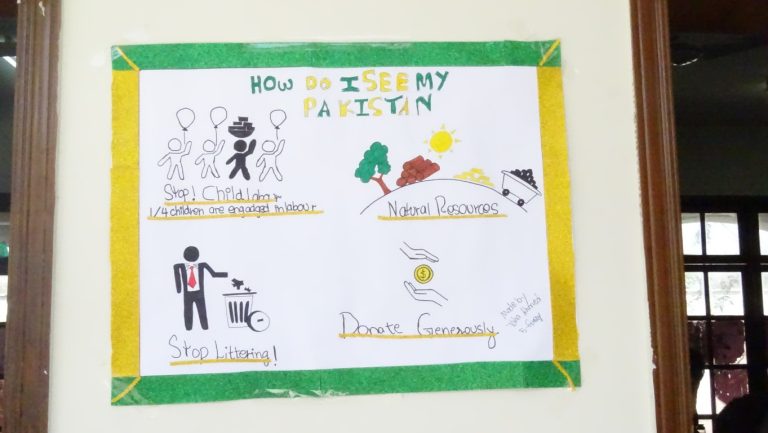 HOW DO I SEE MY
PAKISTAN
Stop! Child labour
1/4 children are engaged in labour
Natural Resources
Stop Littering!
Donate Generously
Made by